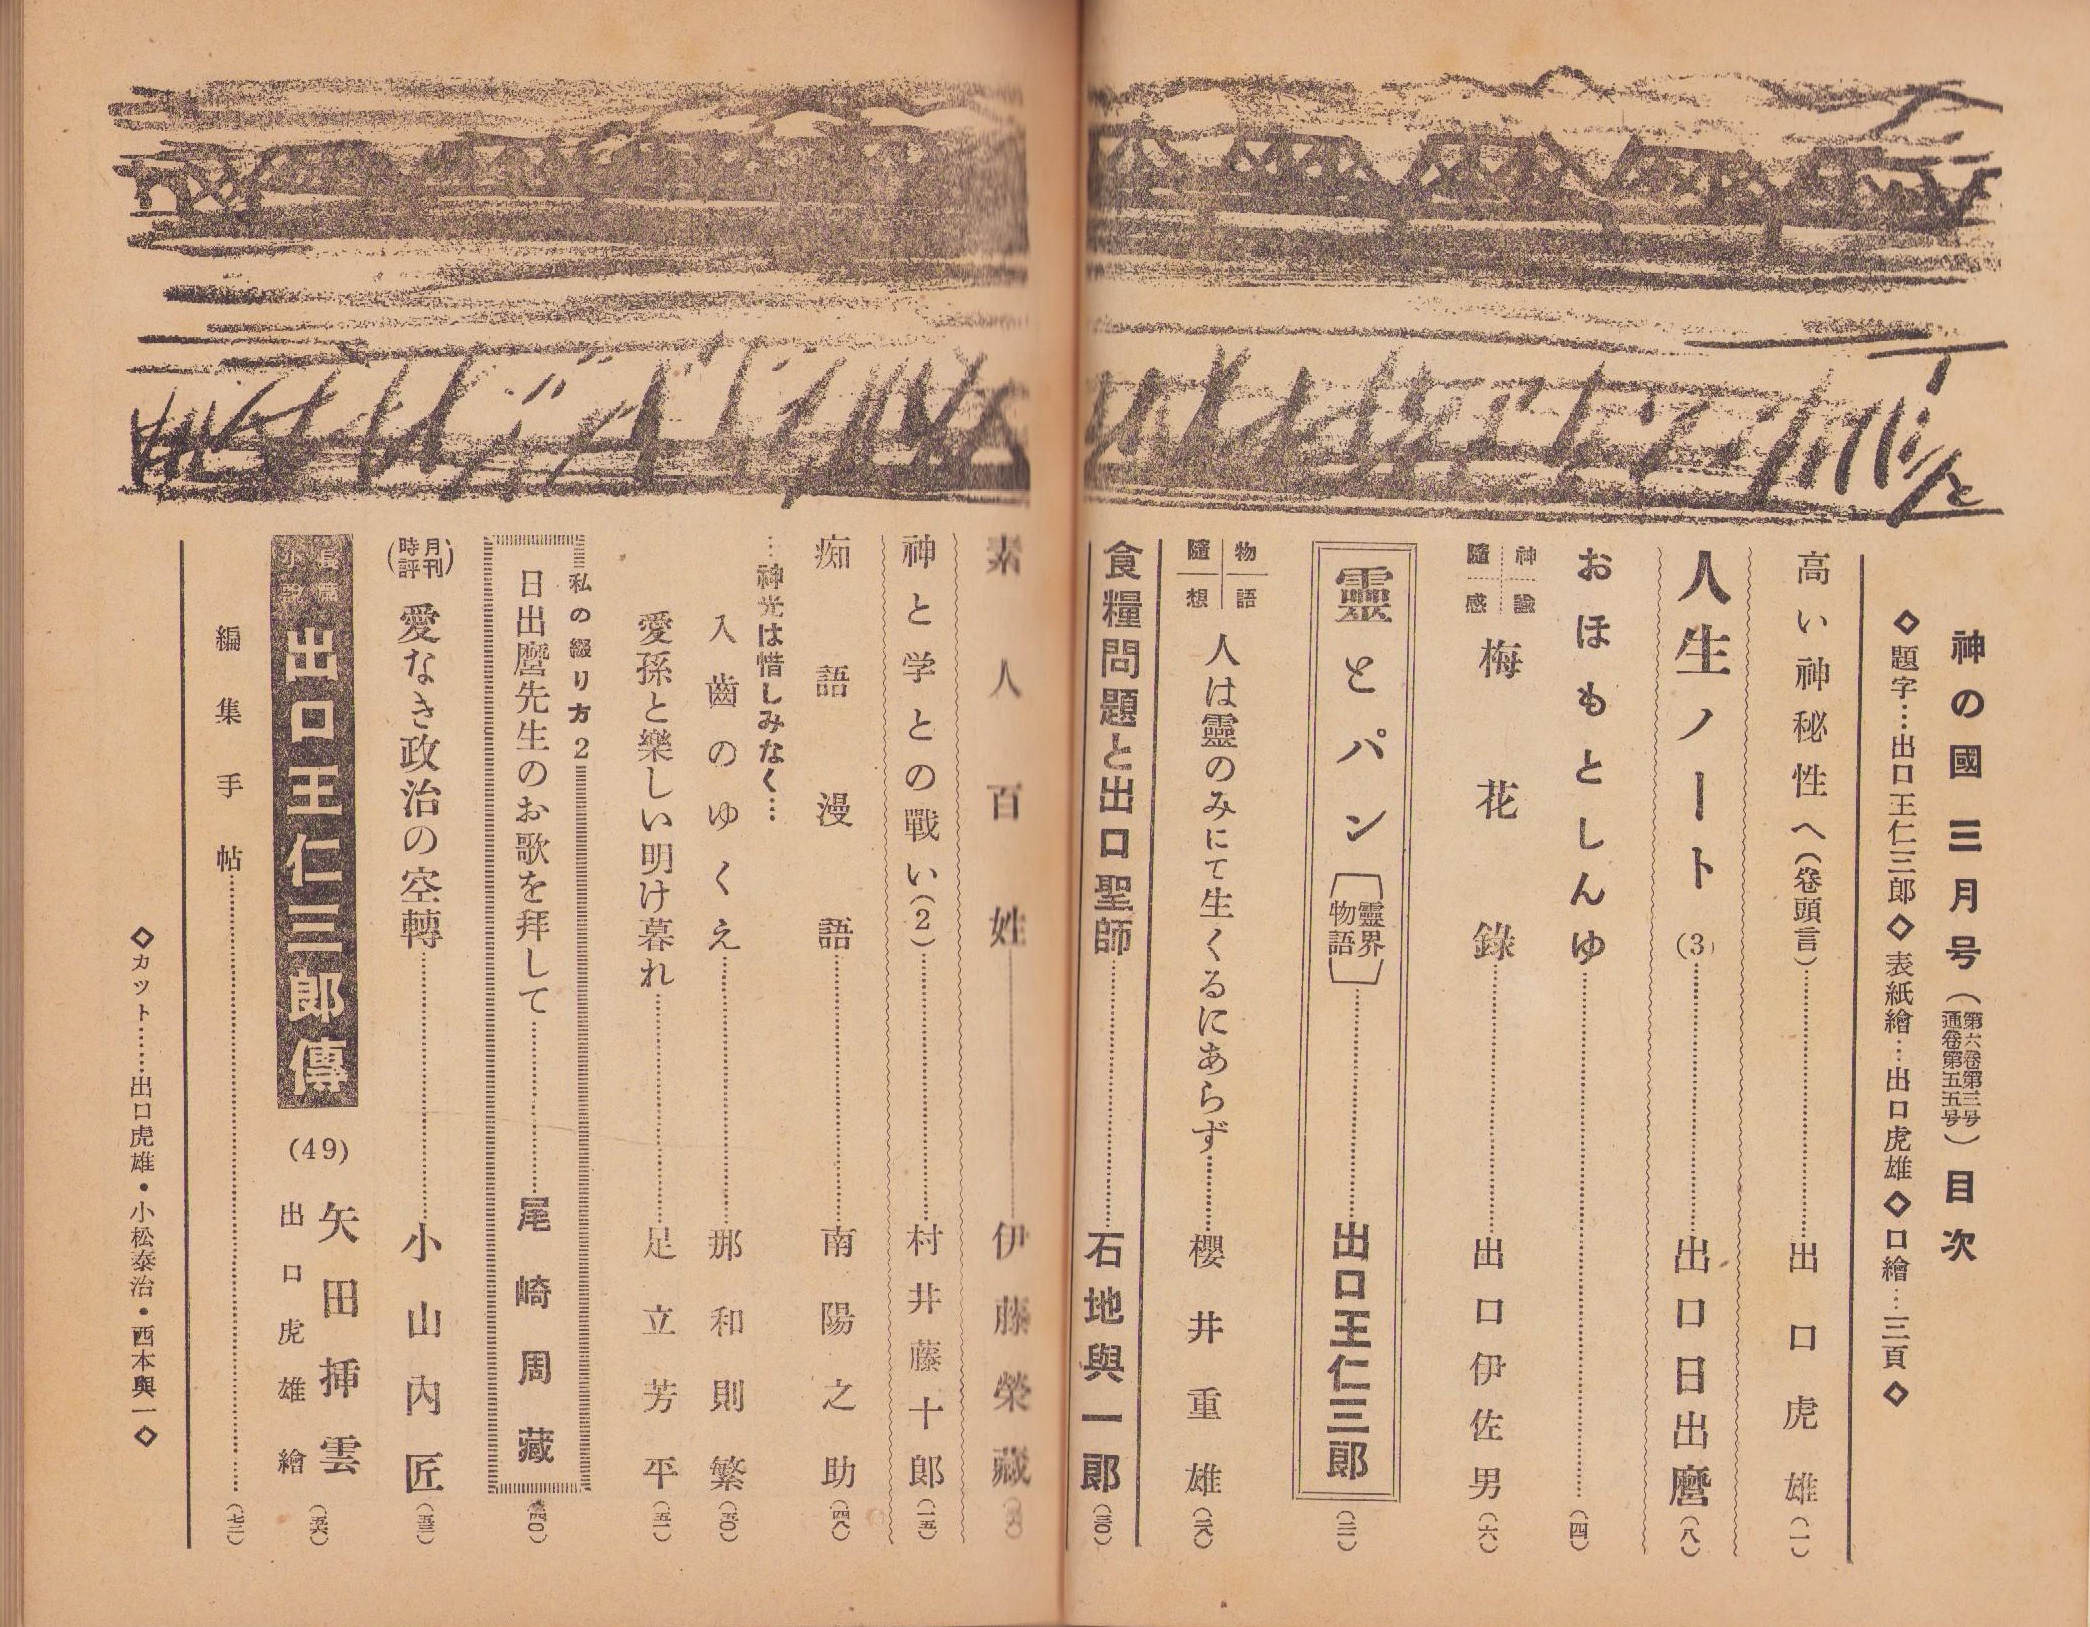 神の國 三月号（第六卷第三号 通卷第五五号）目次
◇題字…出口王仁三郎◇表紙繪…出口虎雄◇口繪…三頁◇
高い神秘性へ（卷頭言）……出口虎雄（一）
人生ノート（3）……出口日出麿（八）
おほもとしんゆ……（四）
神諭隨感 梅花錄……出口伊佐男（六）
靈とパン［靈界物語］……出口王仁三郎（三二）
物語隨想 人は靈のみにて生くるにあらず……櫻井重雄（二八）
食糧問題と出口聖師……石地與一郎（三〇）
素人百姓……伊藤榮藏
神と学との戰い（2）……村井藤十郎（一五）
痴語漫語……南陽之助（四八）
…神光は惜しみなく…
入齒のゆくえ……那和則繁（五〇）
愛孫と樂しい明け暮れ……足立芳平（五一）
私の綴り方2
日出麿先生のお歌を拜して……尾崎周藏（四〇）
（月刊時評）愛なき政治の空轉……小山内匠（五三）
長篇小説 出口王仁三郎傳（49）矢田挿雲
出口虎雄繪（五六）
編集手帖……（七二）
◇カット……出口虎雄・小松泰治・西本與一◇
と